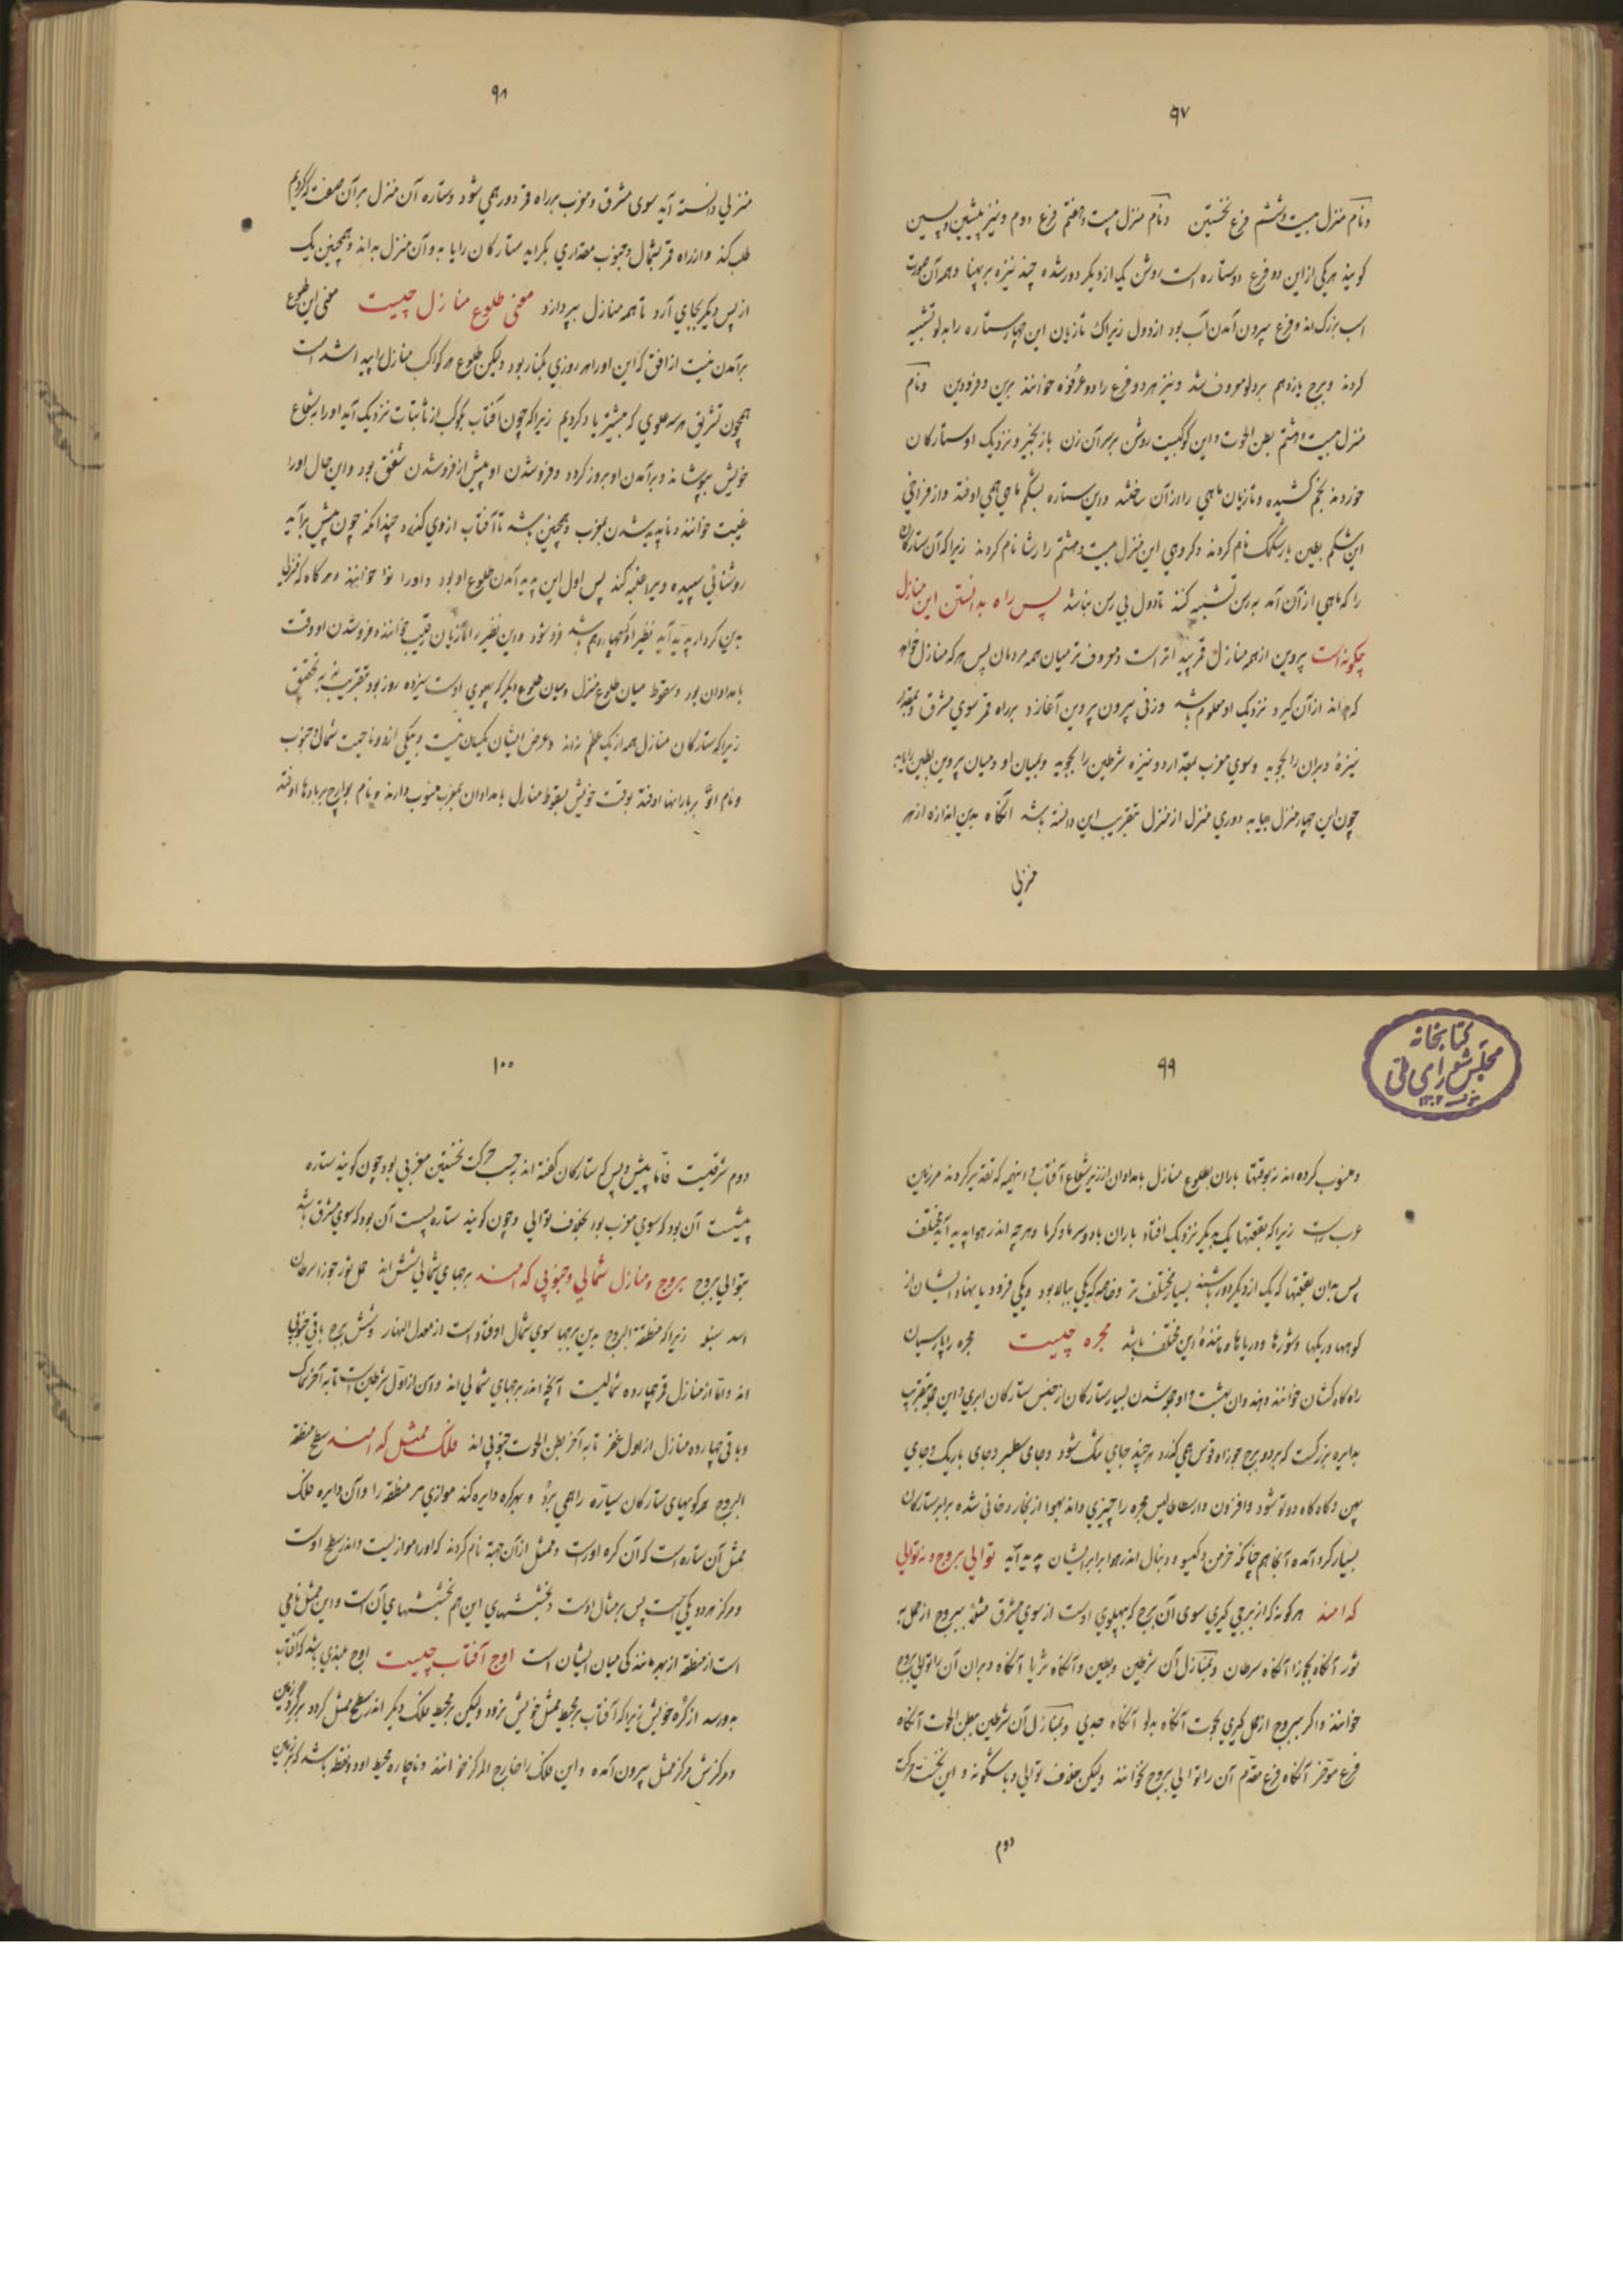 ۹۷
ونام منزل بیست وششم فرغ نخستین ونام منزل بیست وهفتم فرغ دوم ونیز پیشین وپسین
کویند هریکی ازاین دو فرغ دوستاره است روشن یک ازدیکر دورشده چند نیزه بربهنا وهمه آن صورت
اسب بزرک اند وفرغ بیرون آمدن آب بود ازدول زیراک تازیان این چهارستاره رابدلو تشبیه
کردند وبرج یازدهم بردلو معروف شد ونیز هردو فرغ رادو عرقوه خوانند برین وفرودین ونام
منزل بیست وهشتم بطن الحوت واین کوکبیست روشن برسرآن زن بازنجیر ونزدیک او ستارکان
خوردند بخم کشیده وتازیان ماهی راازآن ساختند واین ستاره بشکم ماهی همی اوفتد وازفراخی
این شکم بطین بازشکمک نام کردند وکروهی این منزل بیست وهشتم را رشا نام کردند زیراکه آن ستارکان
را که ماهی ازآن آمد به رسن تشبیه کنند تادول بی رسن نباشد پس راه بدانستن این منازل
چکونه است پروین ازهمه منازل قمر پیداتر است ومعروف تر میان همه مردمان پس هرکه منازل خواهد
که بداند ازآن کیرد نزدیک او معلوم باشد وزفی بیرون پروین آغازد برراه قمر سوی مشرق وبمقدار
نیزهٔ دبران را بجوید وسوی مغرب بمقدار دو نیزه شرطین را بجوید ومیان او ومیان پروین بطین رایابد
چون این چهارمنزل بیابد دوری منزل ازمنزل بتقریب این دانسته باشد انکاه بدین اندازه ازهر
منزلی
۹۸
منزلی دانسته آید سوی مشرق ومغرب برراه قمر دورهمی شود وستاره آن منزل برآن صفت که کردیم
طلب کند وازراه قمر بشمال وجنوب مقداری بکراید ستارکان رایابد وآن منزل بداند وهمچنین یک
ازپس دیکر بجای آرد تا همه منازل بپردازد معنی طلوع منازل چیست معنی این طلوع
برآمدن نیست ازافق که این اورا هر روزی یکبار بود ولیکن طلوع هرکوکب منازل را پیدا شدنست
همچون تشریق هرسه علوی که پیشتر یاد کردیم زیراکه چون آفتاب بکوکب ازثابتات نزدیک آید اورا بشعاع
خویش بپوشاند وبرآمدن او بروز کردد وفروشدن او پیش ازفروشدن شفق بود واین حال اورا
غیبت خوانند وناپدید شدن بمغرب وهمچنین باشد تا آفتاب ازوی کذرد چندانکه چون پیش برآید
روشنائی سپیده ویرا غلبه نکند پس اول این پدید آمدن طلوع او بود واورا نوء خوانند وهرکاه که منزلی
بدین کردار پدید آید نظیر او که چهاردهم باشد فرو شود واین نظیر را تازیان رقیب خوانند وفروشدن او وقت
بامدادان بود وسقوط میان طلوع منزل ومیان طلوع دیکر که پهلوی اوست سیزده روز بود بتقریب نه به تحقیق
زیراکه ستارکان منازل همه ازیک عظم نه اند وعرض ایشان یکسان نیست وبیکی اندوناحیت شمال وجنوب
ونام انوا بربارانها اوفتد بوقت خویش بسقوط منازل بامدادان بمغرب منسوب دارند ونام بوارح بربادها اوفتد
۹۹
کتابخانه
مجلس شورای ملی
ومنسوب کرده اند به وقتها باران بطلوع منازل بامدادان اززیر شعاع آفتاب واینهمه که تقدیر کردند مرزمین
عرب راست زیراکه بقعتها یک به دیکر نزدیک افتاد باران بادوسرما وکرما وهرچه اندر هوا پدید آید مختلف
پس بدان بقعتها که یک ازدیکر دور باشند بسیار مختلف تر وخاصه که یکی ببالا بود ویکی فرود یا پهناء ایشان از
کوهها وریکها وشورها ودریاها ومانندهٔ این مختلف باشد مجره چیست مجره راپارسیان
راه کاه کشان خوانند وهندوان بهشت واو جمع شدن بسیار ستارکان ازجنس ستارکان ابری واین جمله بتقریب
بدایره بزرکست که بردو برج جوزا وقوس همی کذرد هرچند جای تنک شود وجای سطبر وجای باریک وجای
پهن وکاه کاه دوتو شود وافزون وارسطاطالیس مجره را چیزی داند بهوا ازبخار دخانی شده برابر ستارکان
بسیار کرد آمده آنجا هم چنانکه خرمن وکیسو ودنبال اندر هوا برابر ایشان پدید آید توالی بروج ونه توالی
کدامند هرکونه که ازبرجی کیری سوی آن برج که پهلوی اوست ازسوی مشرق مثلا ببروج ازحمل به
ثور آنکاه بجوزا آنکاه سرطان وبمنازل آن شرطین وبطین وآنکاه ثریا آنکاه دبران آن راتوالی بروج
خوانند واکر ببروج ازحمل کیری بحوت آنکاه بدلو آنکاه جدی وبمنازل آن شرطین ببطن الحوت آنکاه
فرغ مؤخر آنکاه فرغ مقدم آن راتوالی بروج نخوانند ولیکن خلاف توالی وباشکونه واین نخست حرکت
دوم
۱۰۰
دوم شرقیست فاما پیش وپس که ستارکان کفته اند برحسب حرکت نخستین مغربی بود چون کویند ستاره
پیشست آن بود که سوی مغرب بود بخلاف توالی وچون کویند ستاره پسست آن بود که سوی مشرق باشد
بتوالی بروج بروج ومنازل شمالی وجنوبی کدامند برجهای شمالی شش اند حمل ثور جوزا سرطان
اسد سنبله زیراکه منطقة البروج بدین برجها سوی شمال اوفتاده است ازمعدل النهار وشش برج باقی جنوبی
اند واما ازمنازل قمر چهارده شمالیست آنچه اندر برجهای شمالی اند وآن ازاول شرطین است تا به آخر سماک
وباقی چهارده منازل ازاول غفر تا به آخر بطن الحوت جنوبی اند فلک ممثل کدامند سطح منطقة
البروج همه کویهای ستارکان سیاره را همی برد وبهرکره دایره کند موازی مر منطقه را وآن دایره فلک
ممثل آن ستاره است که آن کره اوراست وممثل ازآن جهة نام کردند که اورا موازیست واندر سطح اوست
ومرکز هردو یکیست پس برمثال اوست وبخششهای این هم بخششهای آن است واین ممثل نامی
است ازمنطقه ازبهر مانندکی میان ایشان است اوج آفتاب چیست اوج بلندی باشد که آفتاب
بدو رسد ازکره خویش زیراکه آفتاب برمحیط ممثل خویش نرود ولیکن برمحیط فلک دیکر اندر سطح ممثل کردد برکرد زمین
ومرکزش مرکز ممثل بیرون آمده واین فلک راخارج المرکز خوانند وناچاره محیط او دو نقطه باشد که برزمین